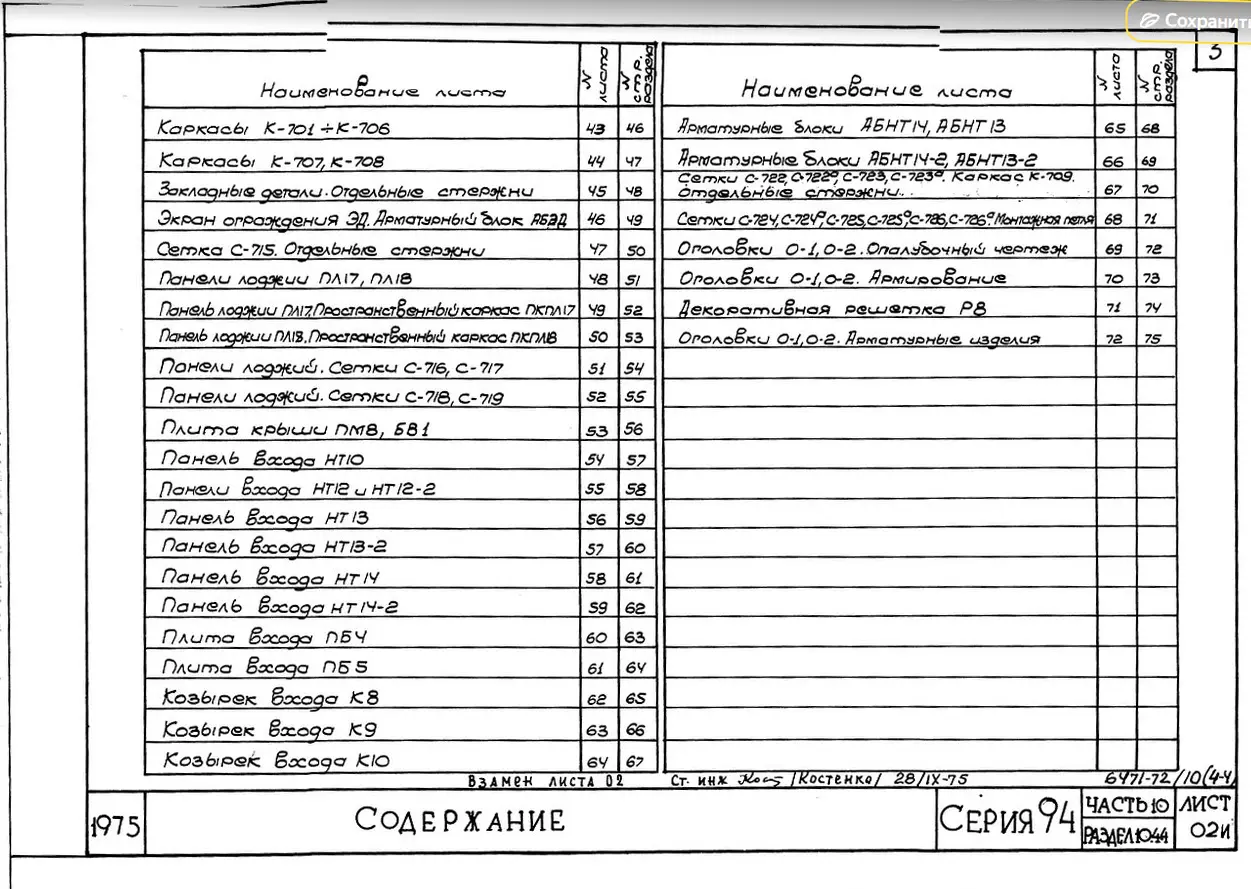 Сохранить
3
Наименование листа № листа № стр. раздела
Каркасы К-701÷К-706 43 46
Каркасы К-707, К-708 44 47
Закладные детали. Отдельные стержни 45 48
Экран ограждения ЭД. Арматурный блок АБЭД 46 49
Сетка С-715. Отдельные стержни 47 50
Панели лоджии ПЛ17, ПЛ18 48 51
Панель лоджии ПЛ17. Пространственный каркас ПКПЛ17 49 52
Панель лоджии ПЛ18. Пространственный каркас ПКПЛ18 50 53
Панели лоджий. Сетки С-716, С-717 51 54
Панели лоджий. Сетки С-718, С-719 52 55
Плита крыши ПМ8, БВ1 53 56
Панель входа НТ10 54 57
Панели входа НТ12 и НТ12-2 55 58
Панель входа НТ13 56 59
Панель входа НТ13-2 57 60
Панель входа НТ14 58 61
Панель входа НТ14-2 59 62
Плита входа ПБ4 60 63
Плита входа ПБ5 61 64
Козырек входа К8 62 65
Козырек входа К9 63 66
Козырек входа К10 64 67
Наименование листа № листа № стр. раздела
Арматурные блоки АБНТ14, АБНТ13 65 68
Арматурные блоки АБНТ14-2, АБНТ13-2 66 69
Сетки С-722, С-722ª, С-723, С-723ª. Каркас К-709.
Отдельные стержни. 67 70
Сетки С-724, С-724ª, С-725, С-725ª, С-726, С-726ª. Монтажная петля 68 71
Оголовки О-1, О-2. Опалубочный чертеж 69 72
Оголовки О-1, О-2. Армирование 70 73
Декоративная решетка Р8 71 74
Оголовки О-1, О-2. Арматурные изделия 72 75
Взамен листа 02 Ст. инж /Костенко/ 28/IX-75 6471-72/10(4-4)
1975 Содержание Серия 94 Часть 10 Раздел 10.44 Лист 02И